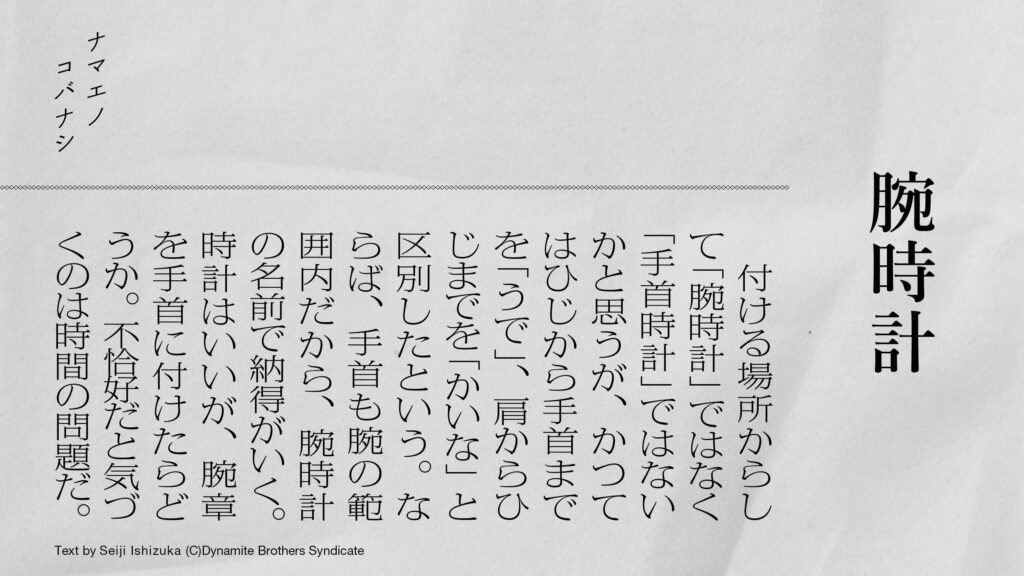 腕時計
付ける場所からし
て「腕時計」ではなく
「手首時計」ではない
かと思うが、かつて
はひじから手首まで
を「うで」、肩からひ
じまでを「かいな」と
区別したという。な
らば、手首も腕の範
囲内だから、腕時計
の名前で納得がいく。
時計はいいが、腕章
を手首に付けたらど
うか。不恰好だと気づ
くのは時間の問題だ。
ナマエノ
コバナシ
Text by Seiji Ishizuka (C)Dynamite Brothers Syndicate